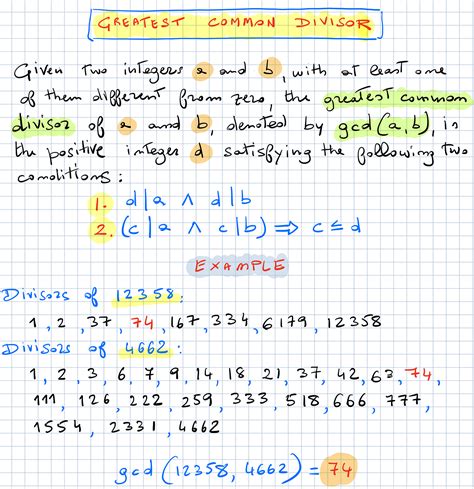 GREATEST COMMON DIVISOR
Given two integers a and b, with at least one
of them different from zero, the greatest common
divisor of a and b, denoted by gcd(a,b), is
the positive integer d satisfying the following two
conditions:
1. d|a ∧ d|b
2. (c|a ∧ c|b) ⇒ c ≤ d
EXAMPLE
Divisors of 12358:
1, 2, 37, 74, 167, 334, 6179, 12358
Divisors of 4662:
1, 2, 3, 6, 7, 9, 14, 18, 21, 37, 42, 63, 74,
111, 126, 222, 259, 333, 518, 666, 777,
1554, 2331, 4662
gcd(12358, 4662) = 74